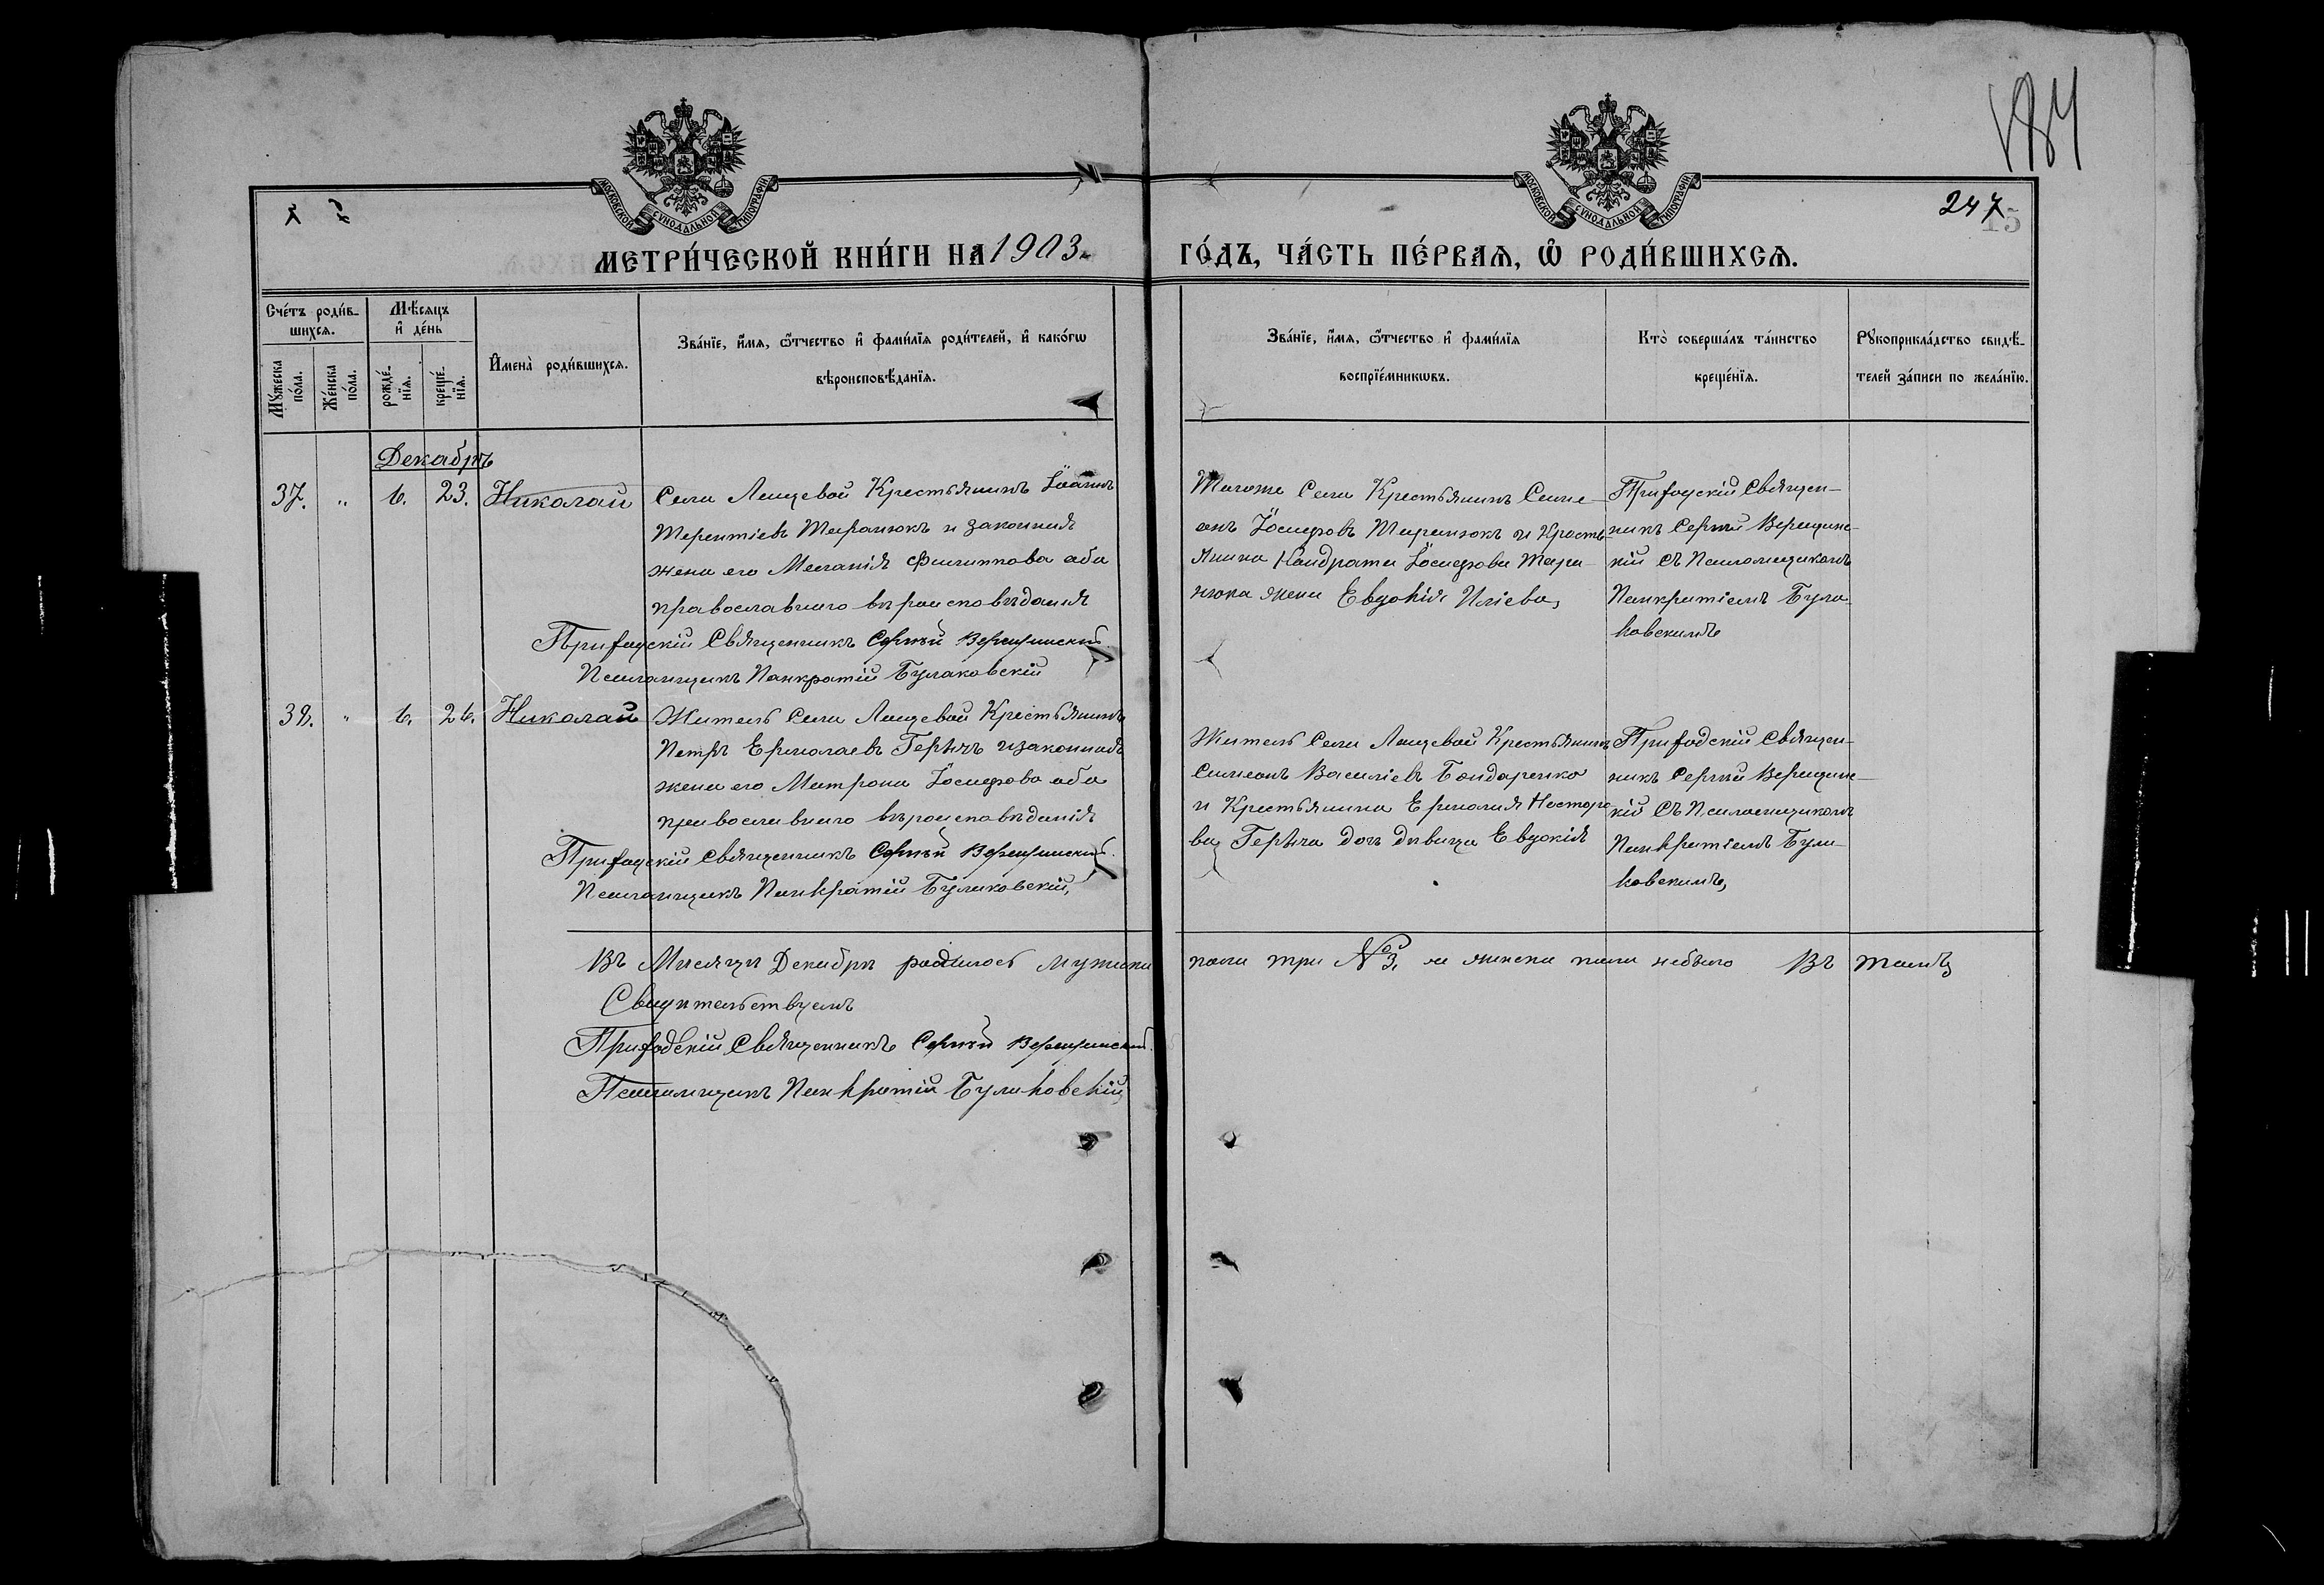 184
247
15
МОСКОВСКОЙ СѴНОДАЛЬНОЙ ТИПОГРАФІИ
МОСКОВСКОЙ СѴНОДАЛЬНОЙ ТИПОГРАФІИ
МЕТРИ́ЧЕСКОЙ КНИ́ГИ НА 1903.
ГО́ДЪ, ЧА́СТЬ ПЕ́РВАѦ, Ѿ РОДИ́ВШИХСѦ.
Сче́тъ роди́в-
шихсѧ.
Мꙋ́жеска по́ла.
Же́нска по́ла.
Мѣ́сѧцъ
и҆ де́нь
рожде́-нїѧ.
креще́-нїѧ.
И҆мена̀ роди́вшихсѧ.
Зва́нїе, и҆́мѧ, ѻ҆́тчество и҆ фами́лїѧ роди́телей, и҆ како́гѡ
вѣроисповѣ́данїѧ.
Зва́нїе, и҆́мѧ, ѻ҆́тчество и҆ фами́лїѧ
воспрїе́мникѡвъ.
Кто̀ соверша́лъ та́инство
креще́нїѧ.
Рꙋкоприкла́дство свидѣ́-
телей за́писи по жела́нїю.
Декабрь
37. " 6. 23. Николай
Села Лещевой Крестьянинъ Іоаннъ
Терентіевъ Таранюкъ и законная
жена его Меланія Филиппова оба
православнаго вѣроисповѣданія
Приходскій Священникъ Сергѣй Верещинскій.
Псаломщикъ Панкратій Булаковскій
Тогоже Села Крестьянинъ Симе-
онъ Іосифовъ Таранюкъ и Кресть-
янина Кондрата Іосифова Тара-
нюка жена Евдокія Иліева,
Приходскій Священ-
никъ Сергѣй Верещинс-
кій съ Псаломщикомъ
Панкратіемъ Була-
ковскимъ
38. " 6. 26. Николай
Житель Села Лещевой Крестьянинъ
Петръ Ермолаевъ Герѣчъ и законная
жена его Матрона Іосифова оба
православнаго вѣроисповѣданія
Приходскій Священникъ Сергѣй Верещинскій.
Псаломщикъ Панкратій Булаковскій,
Житель Села Лещевой Крестьянинъ
Симеонъ Василіевъ Бондаренко
и Крестьянина Ермолая Несторо
ва Герѣча дочь дѣвица Евдокія
Приходскій Священ-
никъ Сергѣй Верещинс-
кій съ Псаломщикомъ
Панкратіемъ Була-
ковскимъ,
Въ Мѣсяцѣ Декабрѣ родилось мужска пола три №3, а женска пола небыло Въ томъ
Свидѣтельствуемъ
Приходскій Священникъ Сергѣй Верещинскій.
Псаломщикъ Панкратій Булаковскій